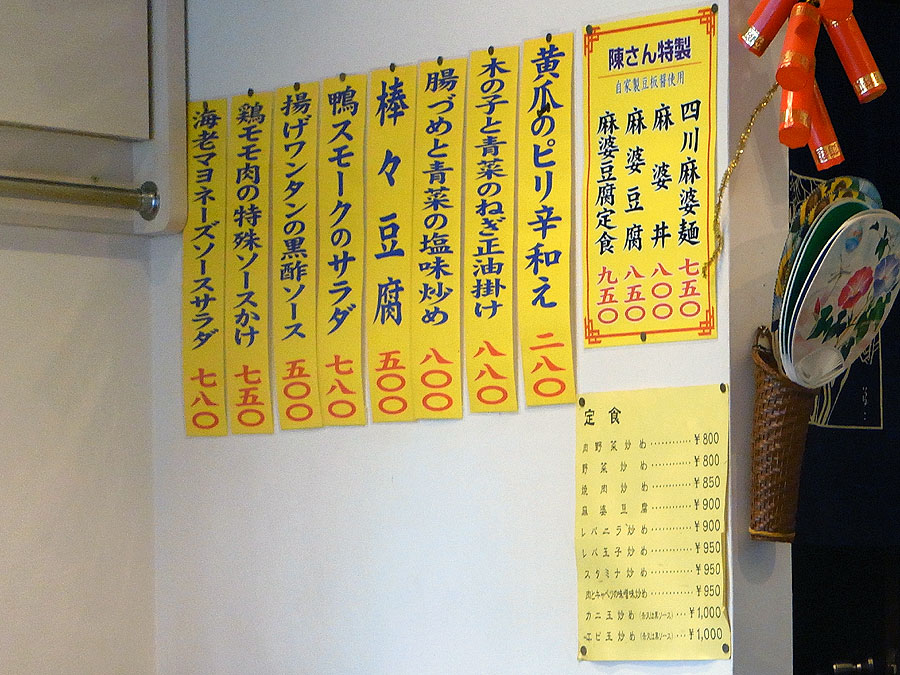 陳さん特製
自家製豆板醤使用
四川麻婆麺 七五〇
麻婆丼 八〇〇
麻婆豆腐 八五〇
麻婆豆腐定食 九五〇
黄瓜のピリ辛和え 二八〇
木の子と青菜のねぎ正油掛け 八八〇
腸づめと青菜の塩味炒め 八〇〇
棒々豆腐 五〇〇
鴨スモークのサラダ 七八〇
揚げワンタンの黒酢ソース 五〇〇
鶏モモ肉の特殊ソースかけ 七五〇
海老マヨネーズソースサラダ 七八〇
定食
肉野菜炒め…………¥800
野菜炒め…………¥800
焼肉炒め…………¥850
麻婆豆腐…………¥900
レバニラ炒め…………¥900
レバ玉子炒め…………¥950
スタミナ炒め…………¥950
肉とキャベツの味噌炒め…………¥950
カニ玉炒め…¥1,000
エビ玉炒め…¥1,000